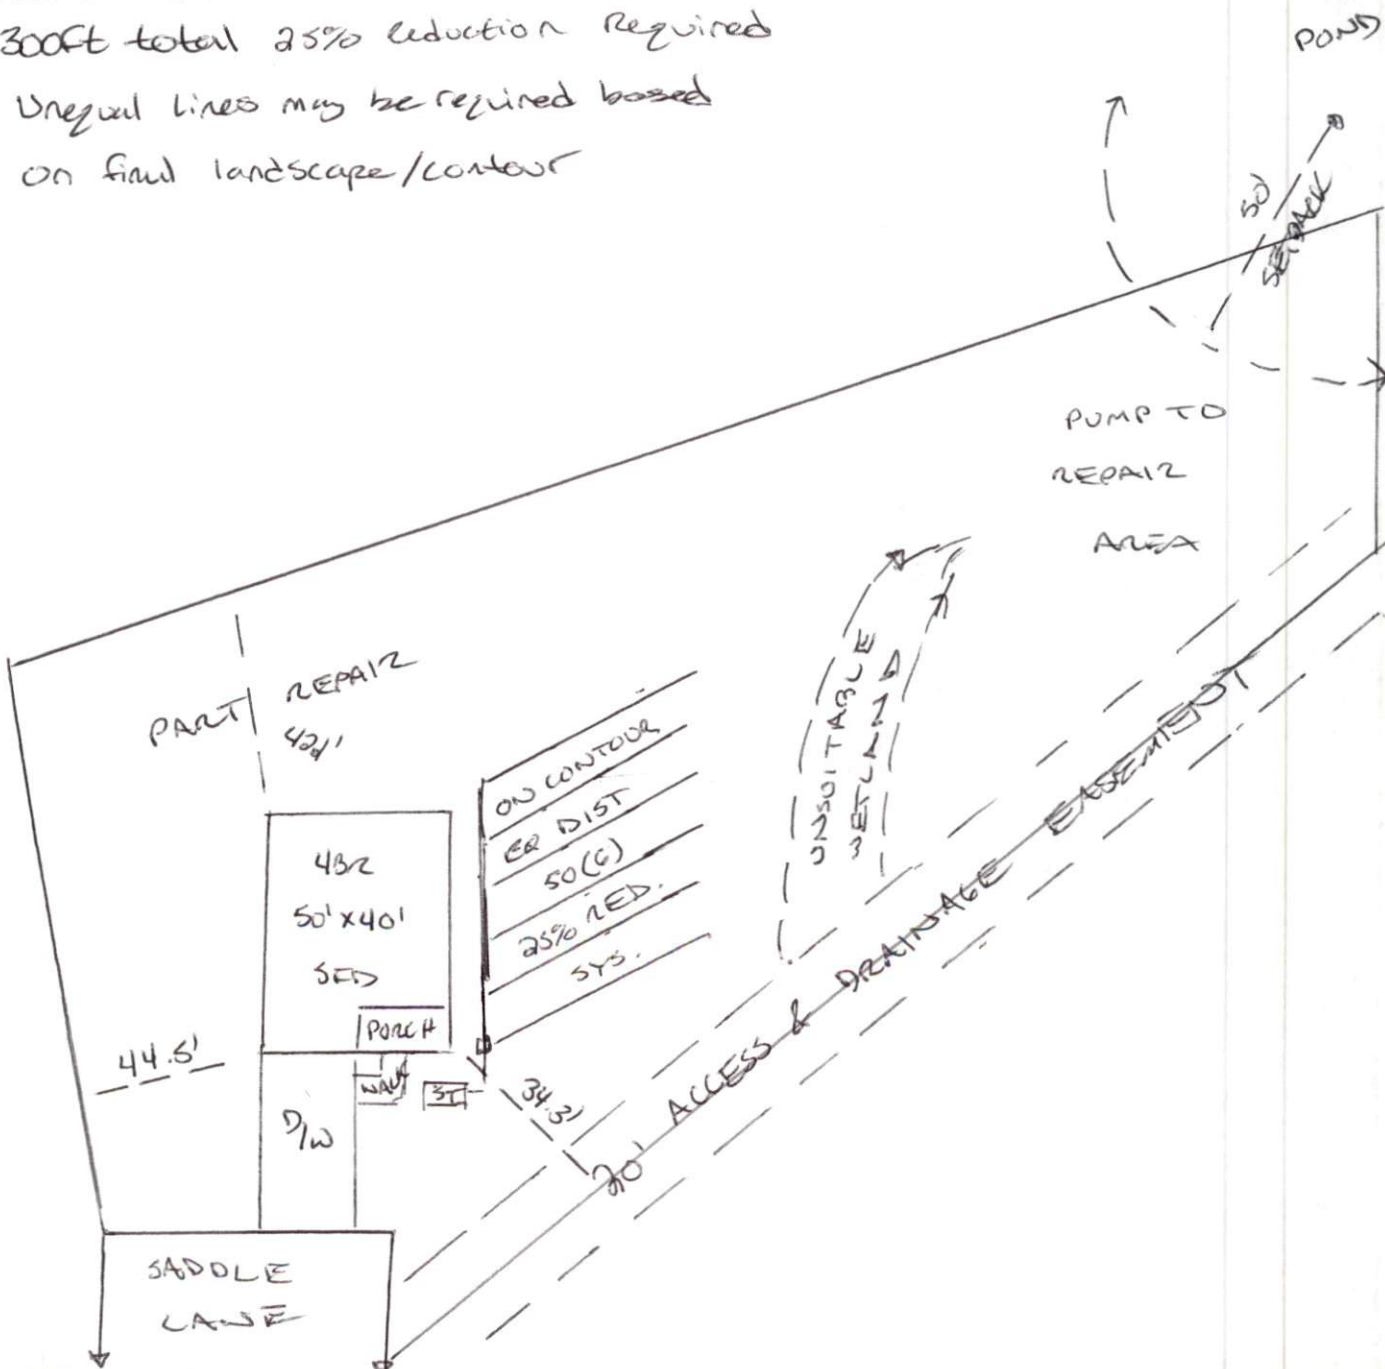 300ft total 25% reduction Required
Unequal Lines may be required based
on final landscape/contour
POND
50'
SETBACK
PUMP TO
REPAIR
AREA
PART REPAIR
UNSUITABLE
WETLAND
ON CONTOUR
EQ DIST
50(6)
25% RED.
SYS.
4BR
50'x40'
SFD
PORCH
WALK
ST
44.5'
D/W
34.3'
20' ACCESS & DRAINAGE EASEMENT
SADDLE
LANE